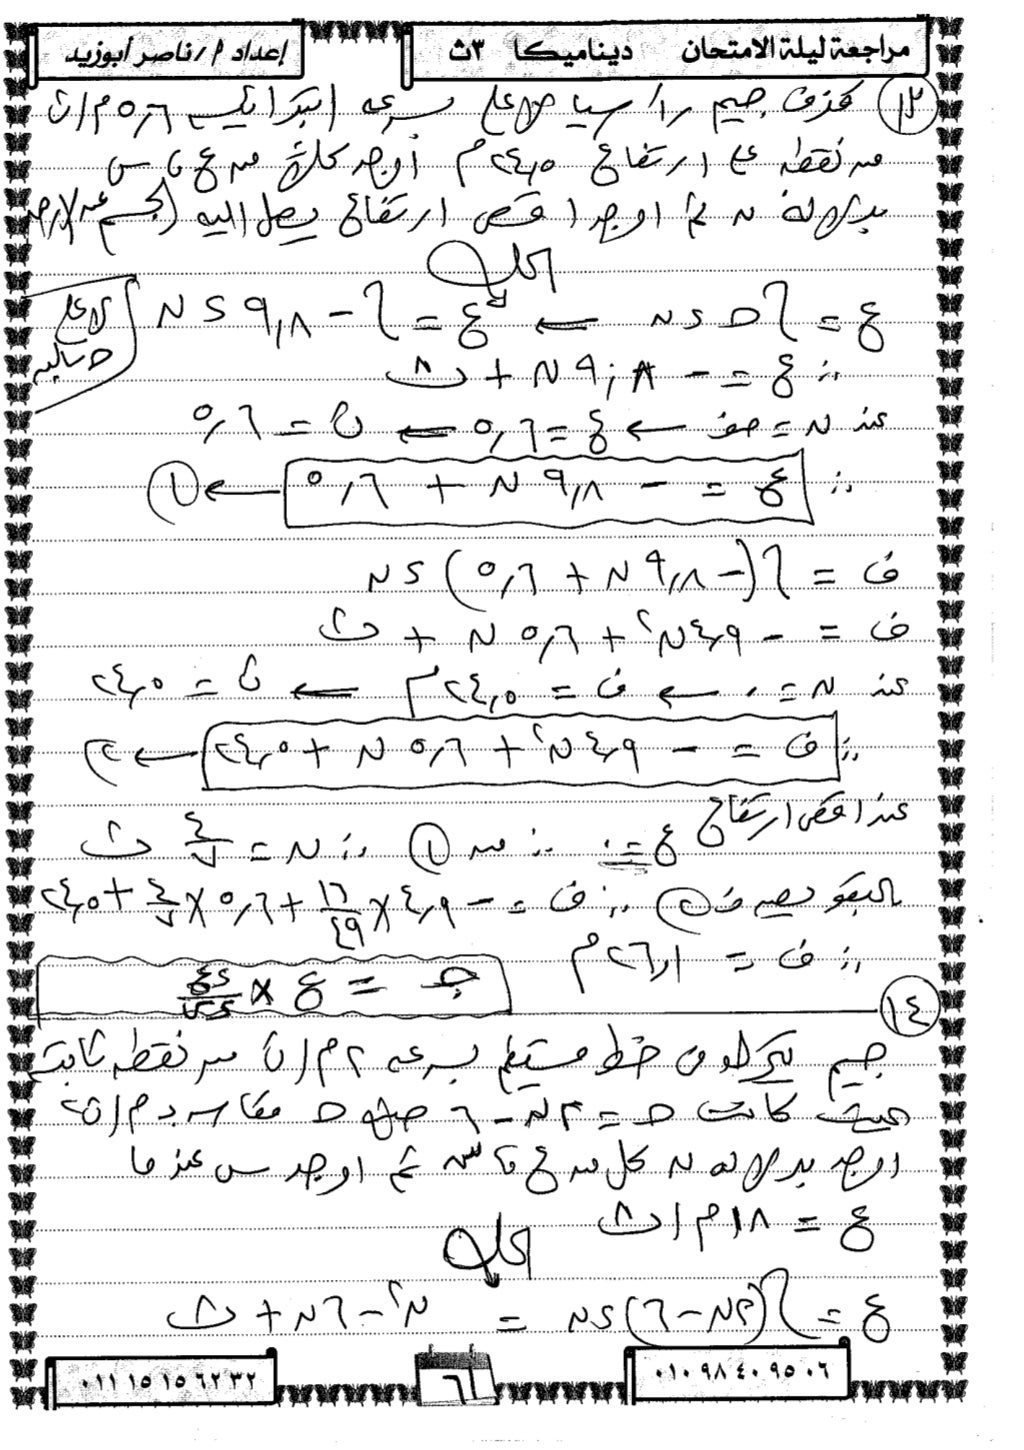 مراجعة ليلة الامتحان ديناميكا ٣ث
إعداد م/ناصر أبوزيد
١٣ قذف جسم رأسيا لأعلى بسرعه ابتدائيه ٥٫٦ م/ث
من نقطه على ارتفاع ٢٤٫٥ م أوجد كلاً من ع ، س
بدلالة ن ثم اوجد اقصى ارتفاع يصل اليه الجسم عن الارض
الحل
ع = ∫ حـ دن ← ع = ∫ - ٩٫٨ دن
لاعلى حـ سالبه
∴ ع = - ٩٫٨ ن + ث
عند ن = صفر ← ع = ٥٫٦ ← ث = ٥٫٦
∴ ع = - ٩٫٨ ن + ٥٫٦ ← ١
ف = ∫ (- ٩٫٨ ن + ٥٫٦) دن
ف = - ٤٫٩ ن² + ٥٫٦ ن + ث
عند ن = ٠ ← ف = ٢٤٫٥ م ← ث = ٢٤٫٥
∴ ف = - ٤٫٩ ن² + ٥٫٦ ن + ٢٤٫٥ ← ٢
عند اقصى ارتفاع
ع = ٠ ∴ من ١ ∴ ن = ٤/٧ ث
بالتعويض فى ٢ ∴ ف = - ٤٫٩ × ١٦/٤٩ + ٥٫٦ × ٤/٧ + ٢٤٫٥
∴ ف = ٢٦٫١ م
جـ = ع × دع/دس
١٤
جسم يتحرك فى خط مستقيم بسرعه ٢ م/ث من نقطه ثابته
بحيث كانت حـ = ٢ن - ٦ حيث حـ مقاسه بـ م/ث٢
اوجد بدلاله ن كل من ع ، س ثم اوجد س عندما
ع = ١٨ م/ث
الحل
ع = ∫ (٢ن - ٦) دن = ن² - ٦ن + ث
٠١٠٩٨٤٠٩٥٠٦
٦١
٠١١١٥١٥٦٢٣٢